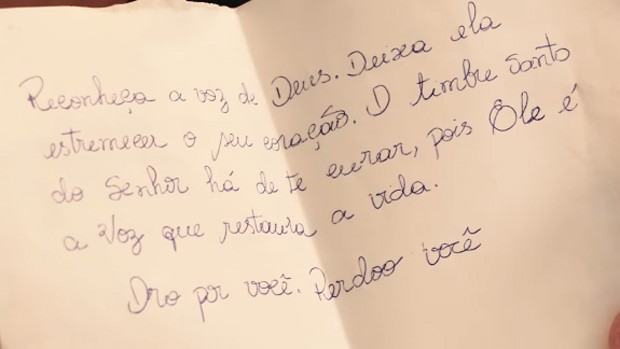 Reconheça a voz de Deus. Deixa ela
estremecer o seu coração. O timbre Santo
do Senhor há de te curar, pois Ele é
a Voz que restaura a vida.
Oro por você. Perdoo você